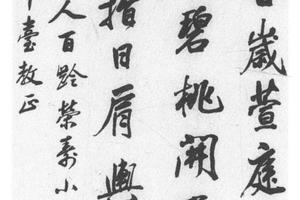 歲萱庭
碧桃開
指日肩輿
人百齡榮壽小
臺教正